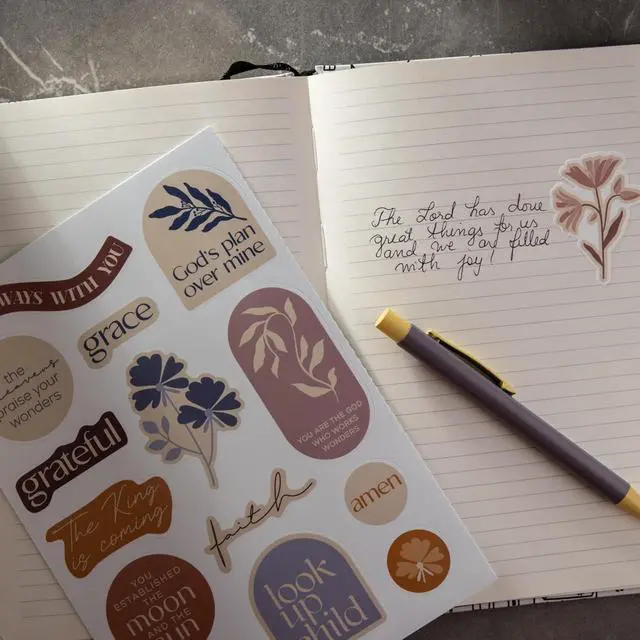 WAYS WITH YOU
God's plan
over mine
grace
the
heavens
praise your
wonders
YOU ARE THE GOD
WHO WORKS
WONDERS
grateful
The King
is coming
faith
amen
YOU
ESTABLISHED
THE
moon
AND THE
sun
look
up
child
The Lord has done
great things for us
and we are filled
with joy!